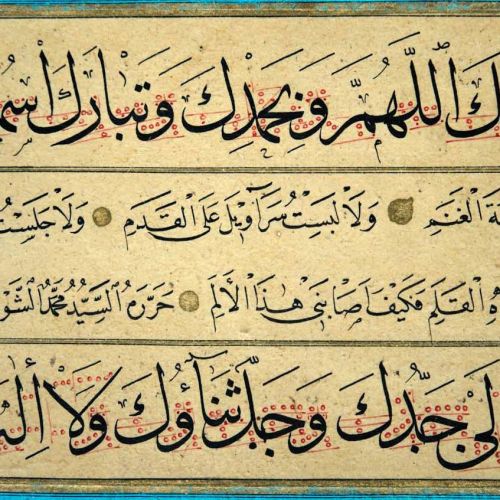 ك اللَّهُمَّ وَبِحَمْدِكَ وَتَبَارَكَ اسْمُ
ةَ الْغَنَمِ وَلَا لَبِسْتُ سَرَاوِيلَ عَلَى الْقَدَمِ وَلَا جَلَسْتُ
هِ الْقَلَمِ فَكَيْفَ أَصَابَنِي هٰذَا الْأَلَمِ حَرَّرَهُ السَّيِّدُ مُحَمَّدُ الشَّوْ
لَى جَدُّكَ وَجَلَّ ثَنَاؤُكَ وَلَا إِلٰهَ